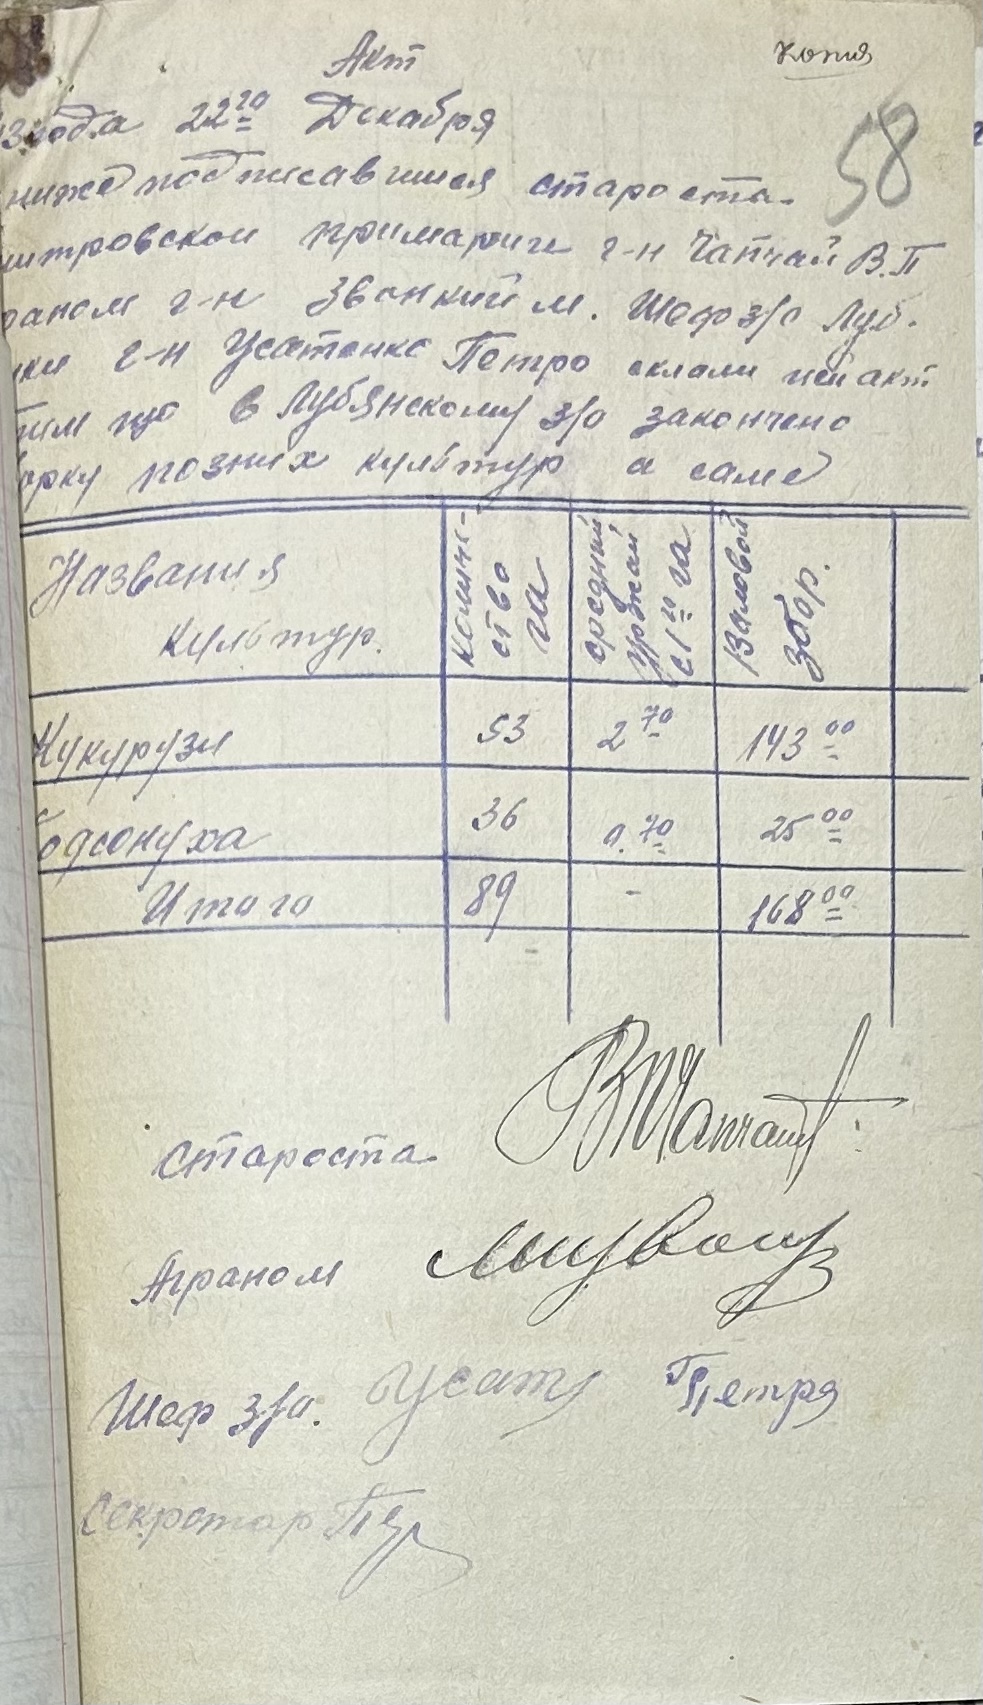 Акт
Копия
58
года 22го Декабря
ниже подписавшиеся староста
митровской примарии г-н Чапчай В.П
раном г-н Звонкий м. Шеф з/о Луб.
нки г-н Усатенко Петро склали цей акт
тим що в Лубянскому з/о закончено
орку позних культур а саме
Названия культур. | количество га | средний уржай с1го га | Валовой збор.
Кукурузи | 53 | 2 70 | 143 00
Подсонуха | 36 | 0.70 | 25 00
Итого | 89 | - | 168 00
Староста
Аграном
Шеф з/о. Усат Петро
Секротар